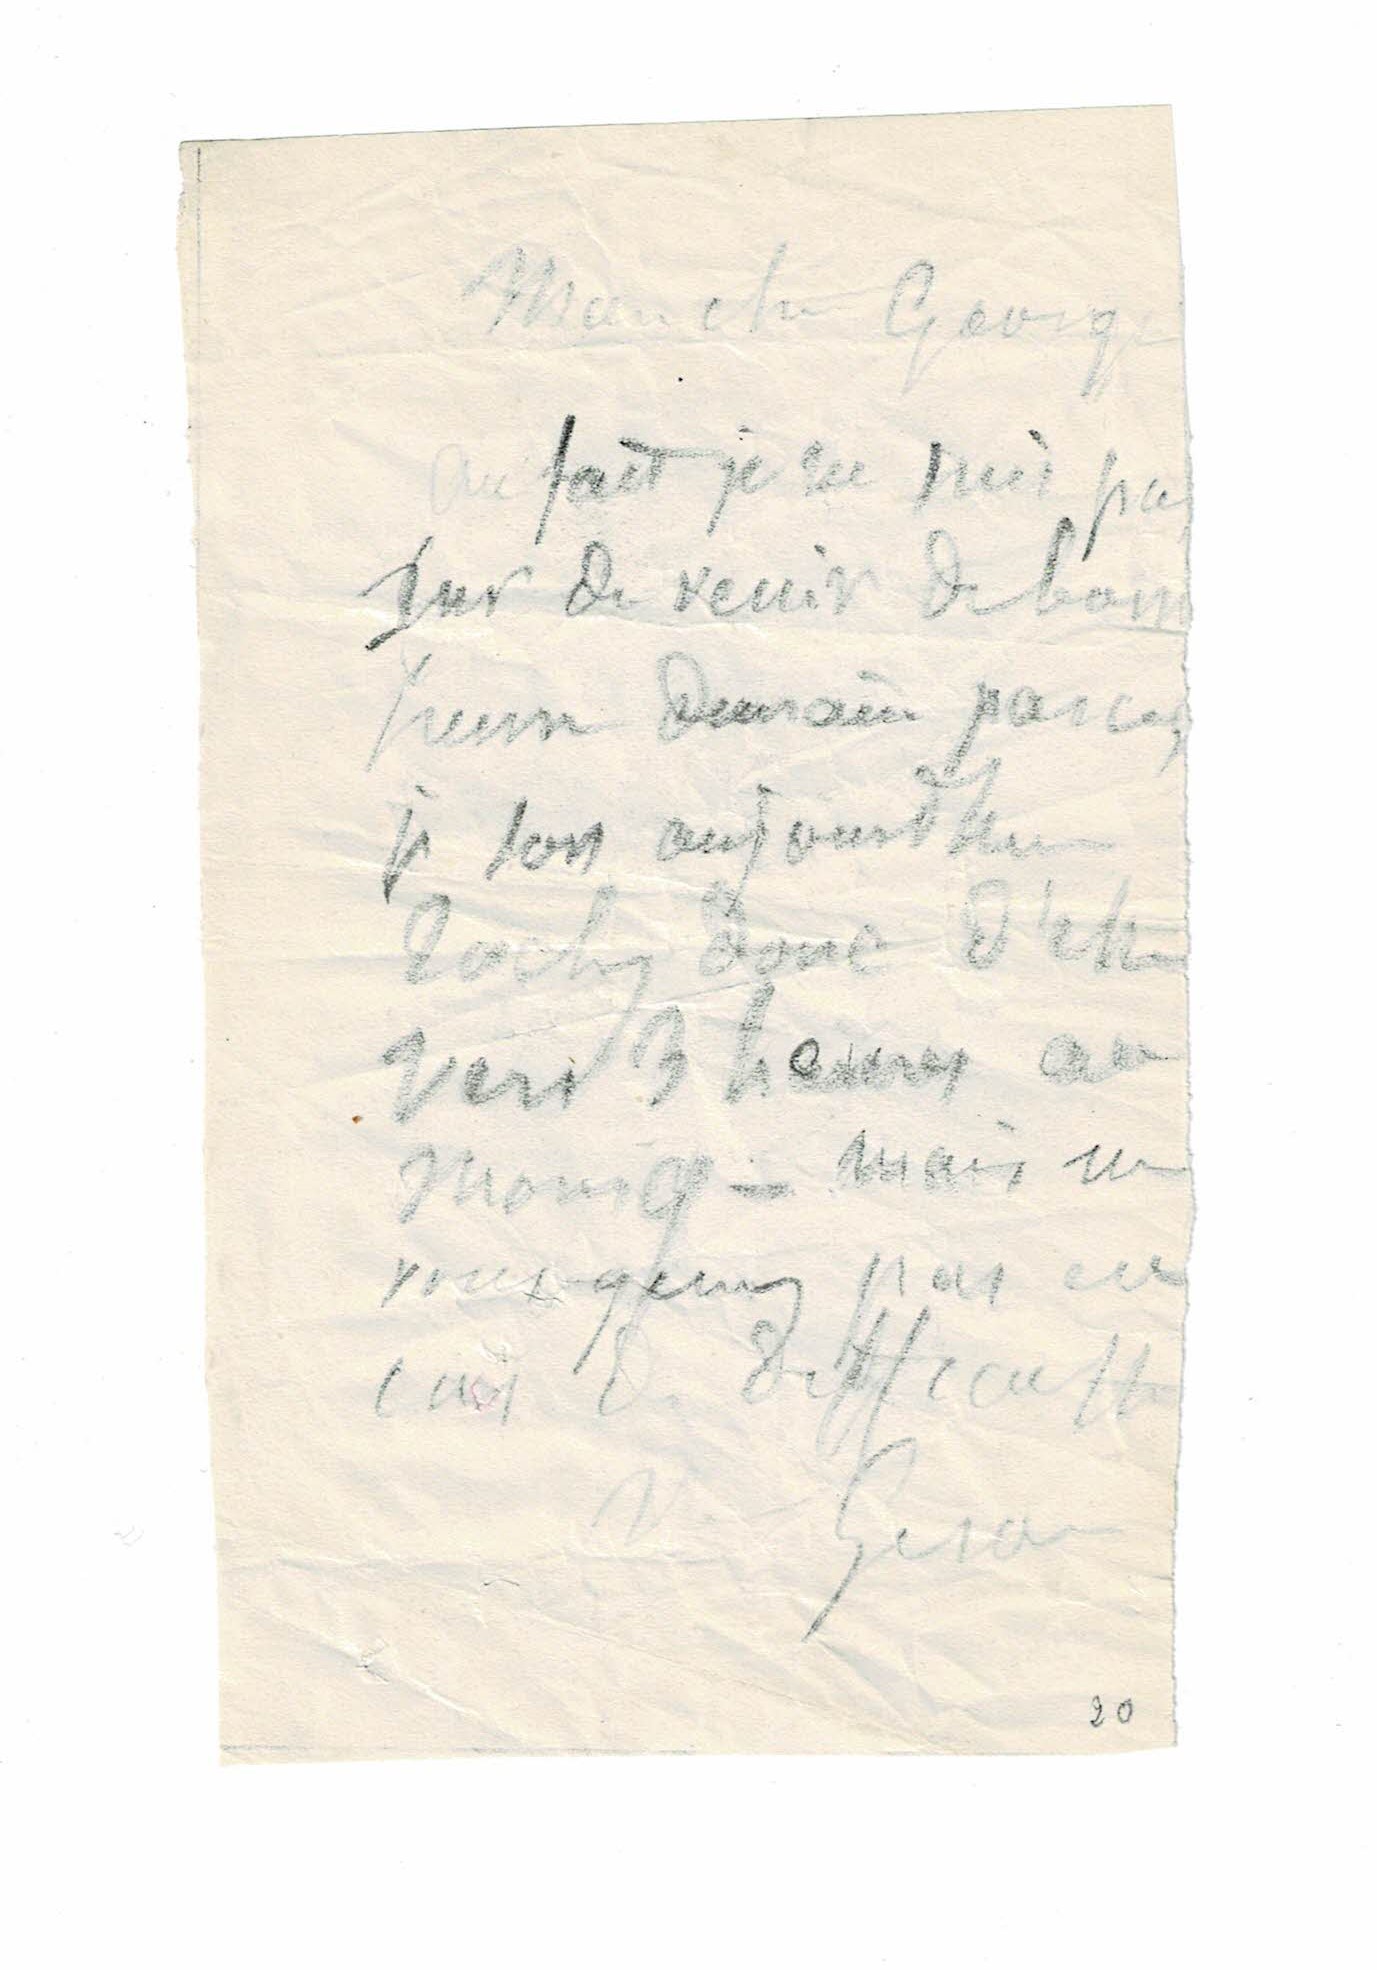 Mon cher George
Au fait je ne suis pas
sur de venir de bonn
heure demain parceq
je sors aujourd'hui
Tachez donc d'etre
vers 3 heures au
mais ne
vous genez pas en
cas de difficulte
20